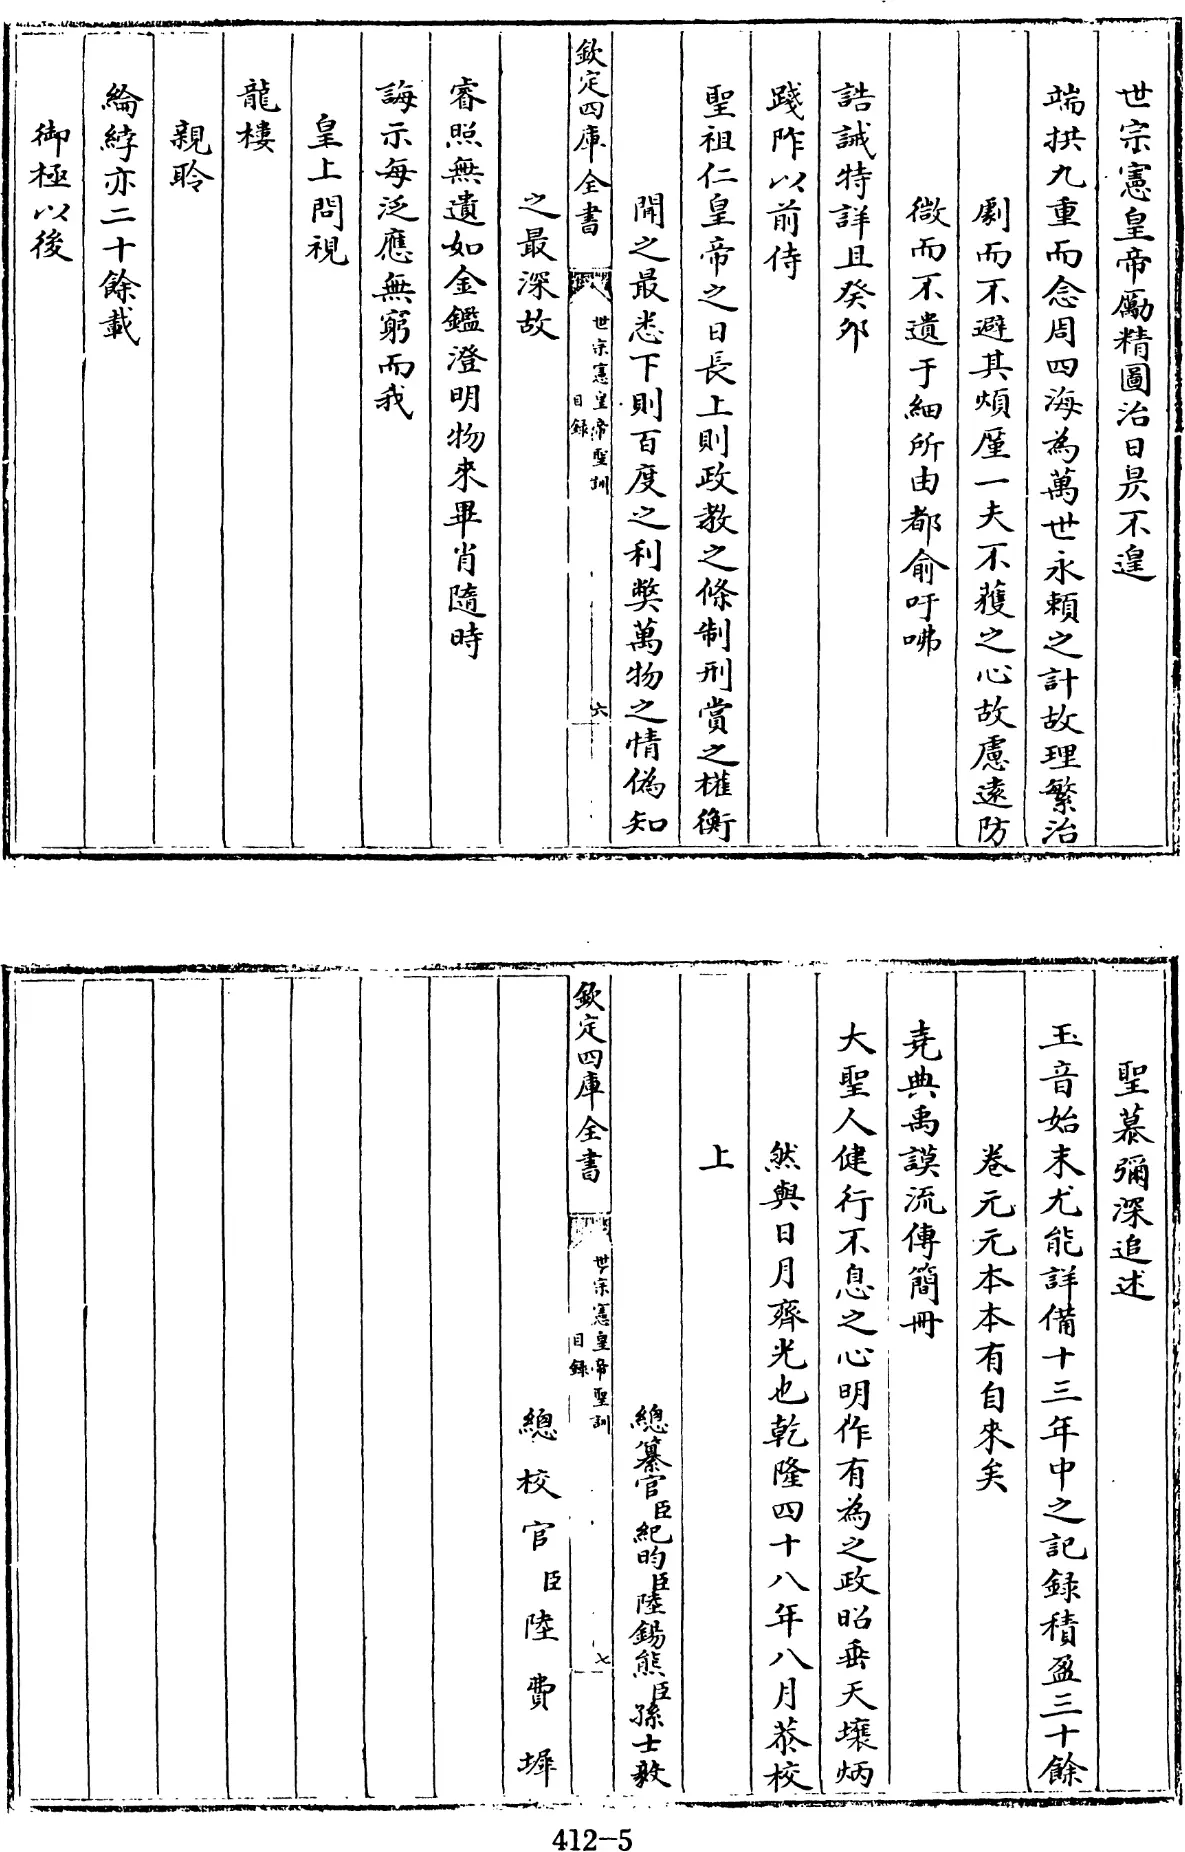 世宗憲皇帝勵精圖治日昃不遑
端拱九重而念周四海為萬世永賴之計故理繁治
劇而不避其煩厪一夫不獲之心故慮遠防
微而不遺于細所由都俞吁咈
誥誡特詳且癸夘
踐阼以前侍
聖祖仁皇帝之日長上則政教之條制刑賞之權衡
聞之最悉下則百度之利弊萬物之情偽知
欽定四庫全書
世宗憲皇帝聖訓
目録
六
之最深故
睿照無遺如金鑑澄明物來畢肖隨時
誨示每泛應無窮而我
皇上問視
龍樓
親聆
綸綍亦二十餘載
御極以後
聖慕彌深追述
玉音始末尤能詳備十三年中之記録積盈三十餘
卷元元本本有自來矣
堯典禹謨流傳簡冊
大聖人健行不息之心明作有為之政昭垂天壤炳
然與日月齊光也乾隆四十八年八月恭校
上
總纂官臣紀昀臣陸錫熊臣孫士毅
欽定四庫全書
世宗憲皇帝聖訓
目録
七
總校官臣陸費墀
412-5